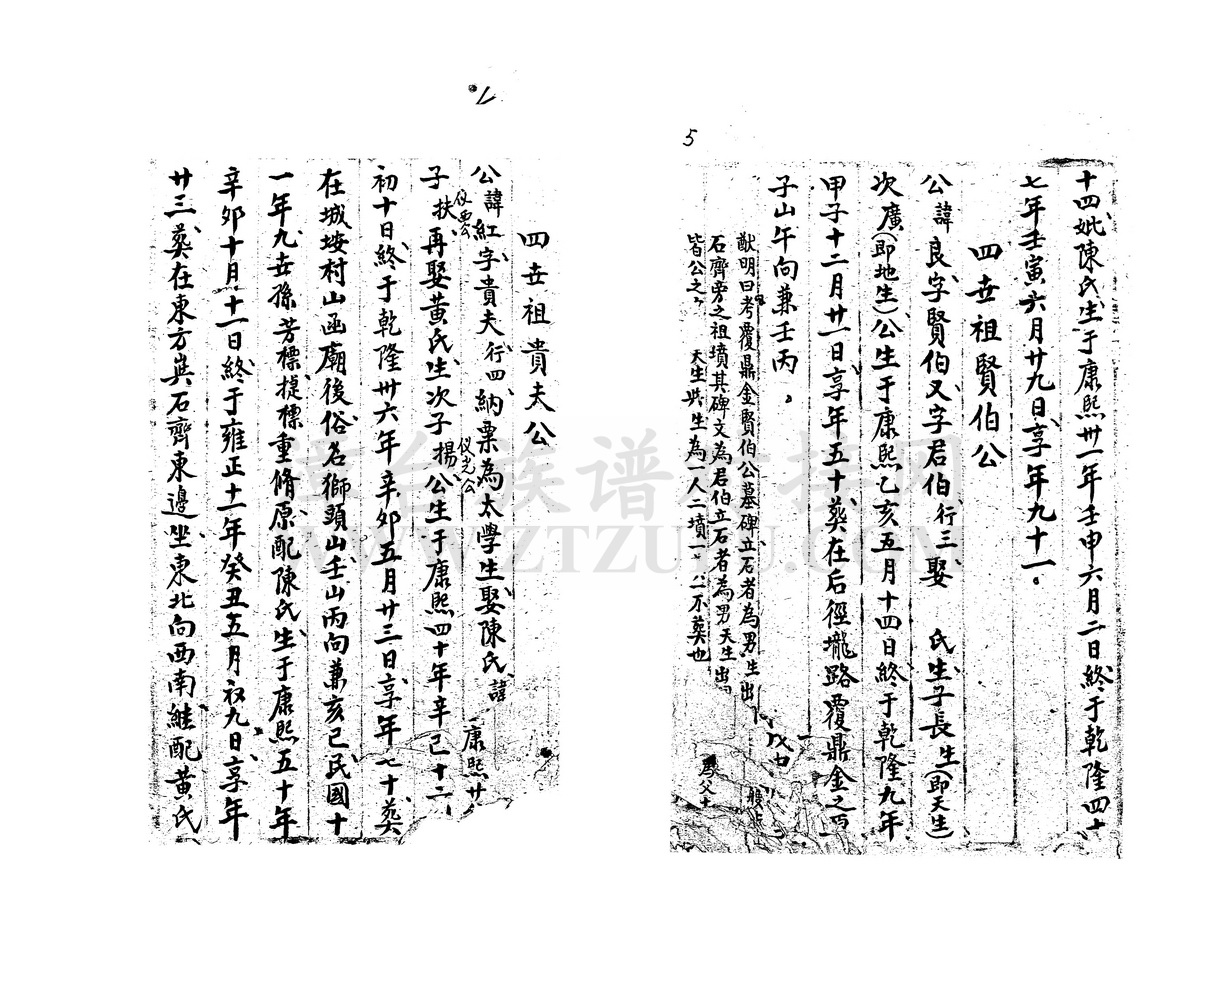 5
十四妣陳氏生于康熙卅一年壬申六月二日終于乾隆四十
七年壬寅六月廿九日享年九十一。
四世祖賢伯公
公諱良字賢伯又字君伯行三娶 氏生子長生(即天生)
次廣(即地生)公生于康熙乙亥五月十四日終于乾隆九年
甲子十二月廿一日享年五十葬在后徑壠路覆鼎金之西
子山午向兼壬丙。
猷明曰考覆鼎金賢伯公墓碑立石者為男生出
石齊旁之祖墳其碑文為君伯立石者為男天生出
皆公之 天生與生為一人二墳一 不葬也
7
四世祖貴夫公
公諱紅字貴夫行四納粟為太學生娶陳氏諱 康熙廿
子扶再娶黃氏生次子揚公生于康熙四十年辛巳十二
仪光公
初十日終于乾隆卅六年辛卯五月廿三日享年七十葬
在城垵村山函廟後俗名獅頭山壬山丙向兼亥巳民國十
一年九世孫芳標捷標重脩原配陳氏生于康熙五十年
辛卯十月十一日終于雍正十一年癸丑五月初九日享年
廿三葬在東方與石齊東邊坐東北向西南継配黃氏
漳台族谱对接网
WWW.ZTZUPU.COM